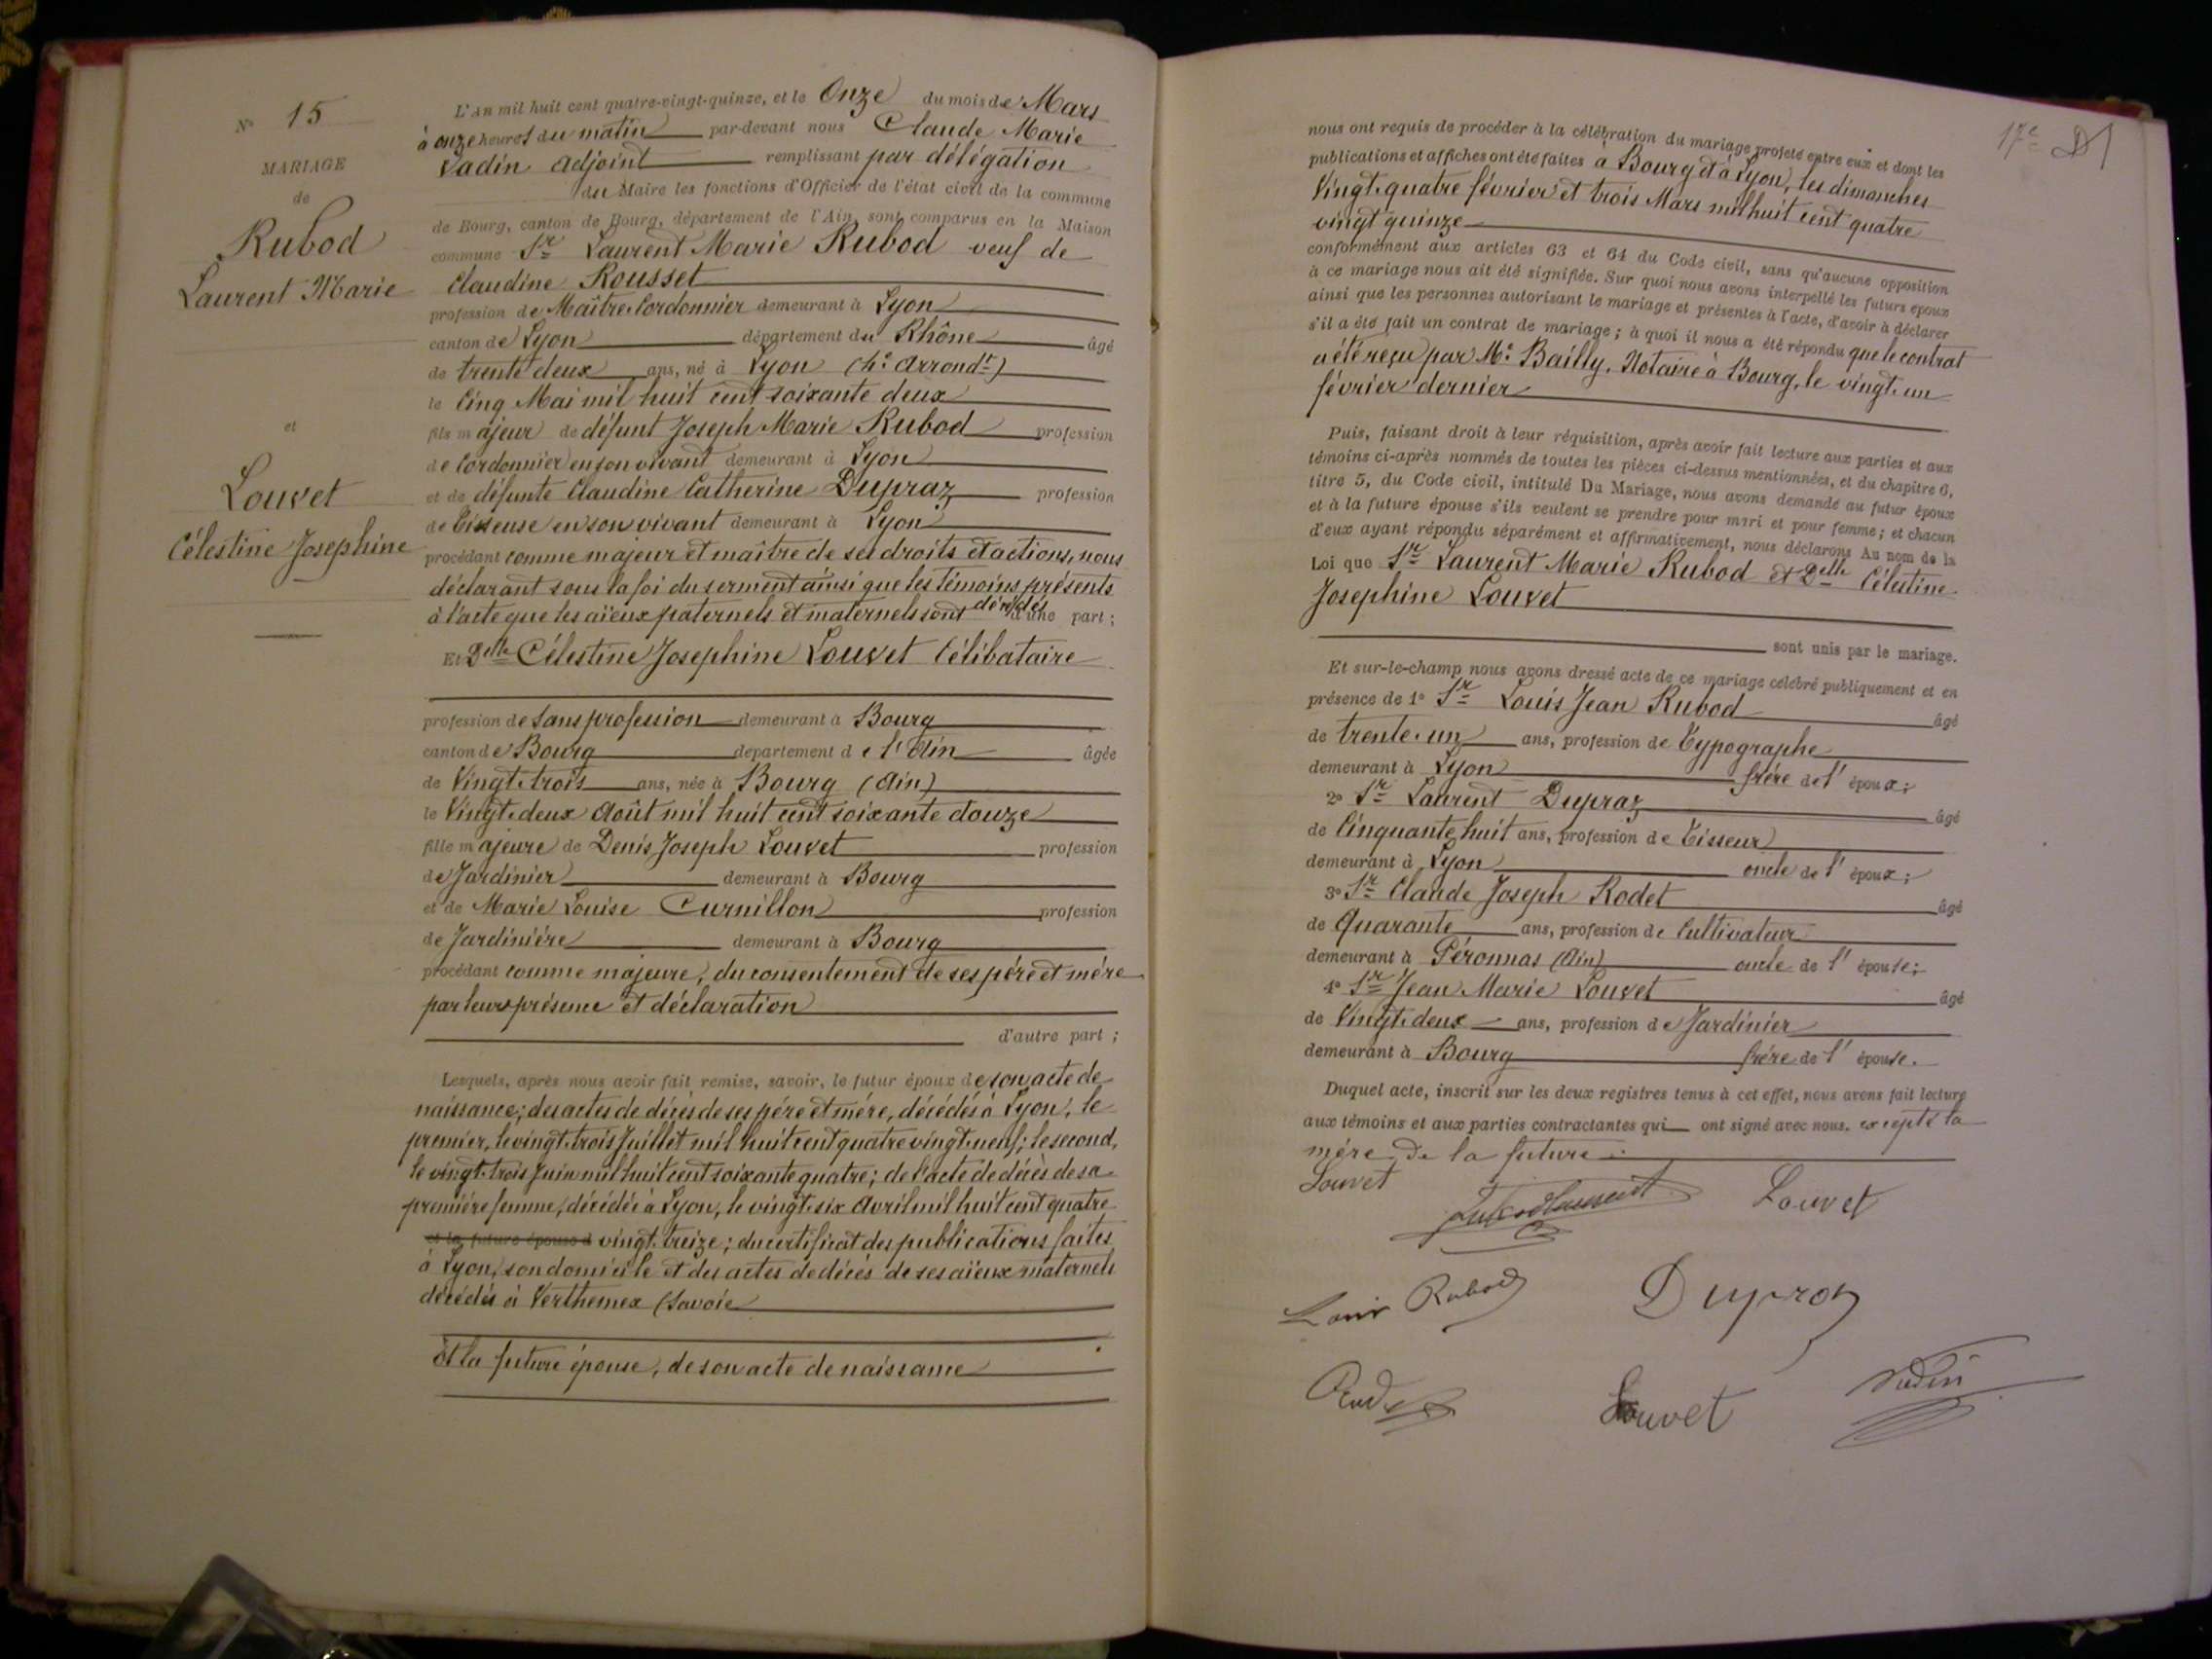 N° 15
MARIAGE
de
Rubod
Laurent Marie
et
Louvet
Célestine Josephine
L'An mil huit cent quatre-vingt-quinze, et le Onze du mois de Mars
à onze heures du matin par-devant nous Claude Marie
Vadin adjoint remplissant par délégation
du Maire les fonctions d'Officier de l'état civil de la commune
de Bourg, canton de Bourg, département de l'Ain, sont comparus en la Maison
commune Sr Laurent Marie Rubod veuf de
Claudine Rousset
profession de Maître Cordonnier demeurant à Lyon
canton de Lyon département du Rhône âgé
de trente deux ans, né à Lyon (4e Arrondt)
le Cinq Mai mil huit cent soixante deux
fils majeur de défunt Joseph Marie Rubod profession
de Cordonnier en son vivant demeurant à Lyon
et de défunte Claudine Catherine Dupraz profession
de Tisseuse en son vivant demeurant à Lyon
procédant comme majeur et maître de ses droits et actions, nous
déclarant sous la foi du serment ainsi que les témoins présents
à l'acte que les aïeux paternels et maternels sont décédés d'une part ;
Et Delle Célestine Josephine Louvet Célibataire
profession de Sans profession demeurant à Bourg
canton de Bourg département de l'Ain âgée
de Vingt-trois ans, née à Bourg (Ain)
le Vingt-deux Août mil huit cent soixante douze
fille majeure de Denis Joseph Louvet profession
de Jardinier demeurant à Bourg
et de Marie Louise Curnillon profession
de Jardinière demeurant à Bourg
procédant comme majeure, du consentement de ses père et mère
par leurs présence et déclaration
d'autre part ;
Lesquels, après nous avoir fait remise, savoir, le futur époux de son acte de
naissance ; des actes de décès de ses père et mère, décédés à Lyon, le
premier, le vingt-trois Juillet mil huit cent quatre vingt-neuf ; le second,
le vingt-trois Juin mil huit cent soixante quatre ; de l'acte de décès de sa
première femme, décédée à Lyon, le vingt-six Avril mil huit cent quatre
et la future épouse d vingt-treize ; du certificat des publications faites
à Lyon, son domicile et des actes de décès de ses aïeux maternels
décédés à Verthemex (Savoie
Et la future épouse, de son acte de naissance
17e
nous ont requis de procéder à la célébration du mariage projeté entre eux et dont les
publications et affiches ont été faites à Bourg et à Lyon, les dimanches
Vingt-quatre février et trois Mars mil huit cent quatre
vingt quinze
conformément aux articles 63 et 64 du Code civil, sans qu'aucune opposition
à ce mariage nous ait été signifiée. Sur quoi nous avons interpellé les futurs époux
ainsi que les personnes autorisant le mariage et présentes à l'acte, d'avoir à déclarer
s'il a été fait un contrat de mariage ; à quoi il nous a été répondu que le contrat
a été reçu par Me Bailly, Notaire à Bourg, le vingt-un
février dernier
Puis, faisant droit à leur réquisition, après avoir fait lecture aux parties et aux
témoins ci-après nommés de toutes les pièces ci-dessus mentionnées, et du chapitre 6,
titre 5, du Code civil, intitulé Du Mariage, nous avons demandé au futur époux
et à la future épouse s'ils veulent se prendre pour mari et pour femme ; et chacun
d'eux ayant répondu séparément et affirmativement, nous déclarons Au nom de la
Loi que Sr Laurent Marie Rubod et Delle Célestine
Josephine Louvet
sont unis par le mariage.
Et sur-le-champ nous avons dressé acte de ce mariage célébré publiquement et en
présence de 1° Sr Louis Jean Rubod âgé
de trente-un ans, profession de Typographe
demeurant à Lyon frère de l'époux ;
2° Sr Laurent Dupraz âgé
de Cinquante huit ans, profession de Tisseur
demeurant à Lyon oncle de l'époux ;
3° Sr Claude Joseph Rodet âgé
de Quarante ans, profession de Cultivateur
demeurant à Péronnas (Ain) oncle de l'épouse ;
4° Sr Jean Marie Louvet âgé
de Vingt-deux ans, profession de Jardinier
demeurant à Bourg frère de l'épouse.
Duquel acte, inscrit sur les deux registres tenus à cet effet, nous avons fait lecture
aux témoins et aux parties contractantes qui ont signé avec nous. excepté la
mère de la future.
Louvet
Louvet
Louis Rubod
Dupraz
Rodet
Louvet
Vadin